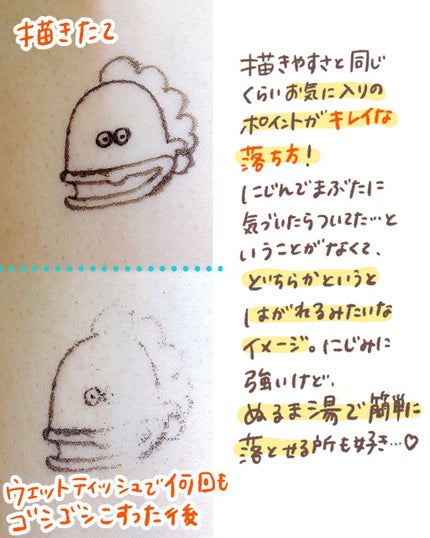 描きたて
描きやすさと同じ
くらいお気に入りの
ポイントがキレイな
落ち方！
にじんでまぶたに
気づいたらついてた…と
いうことがなくて、
どちらかというと
はがれるみたいな
イメージ。にじみに
強いけど、
ぬるま湯で簡単に
落とせる所も好き…♡
ウェットティッシュで何回も
ゴシゴシこすった後